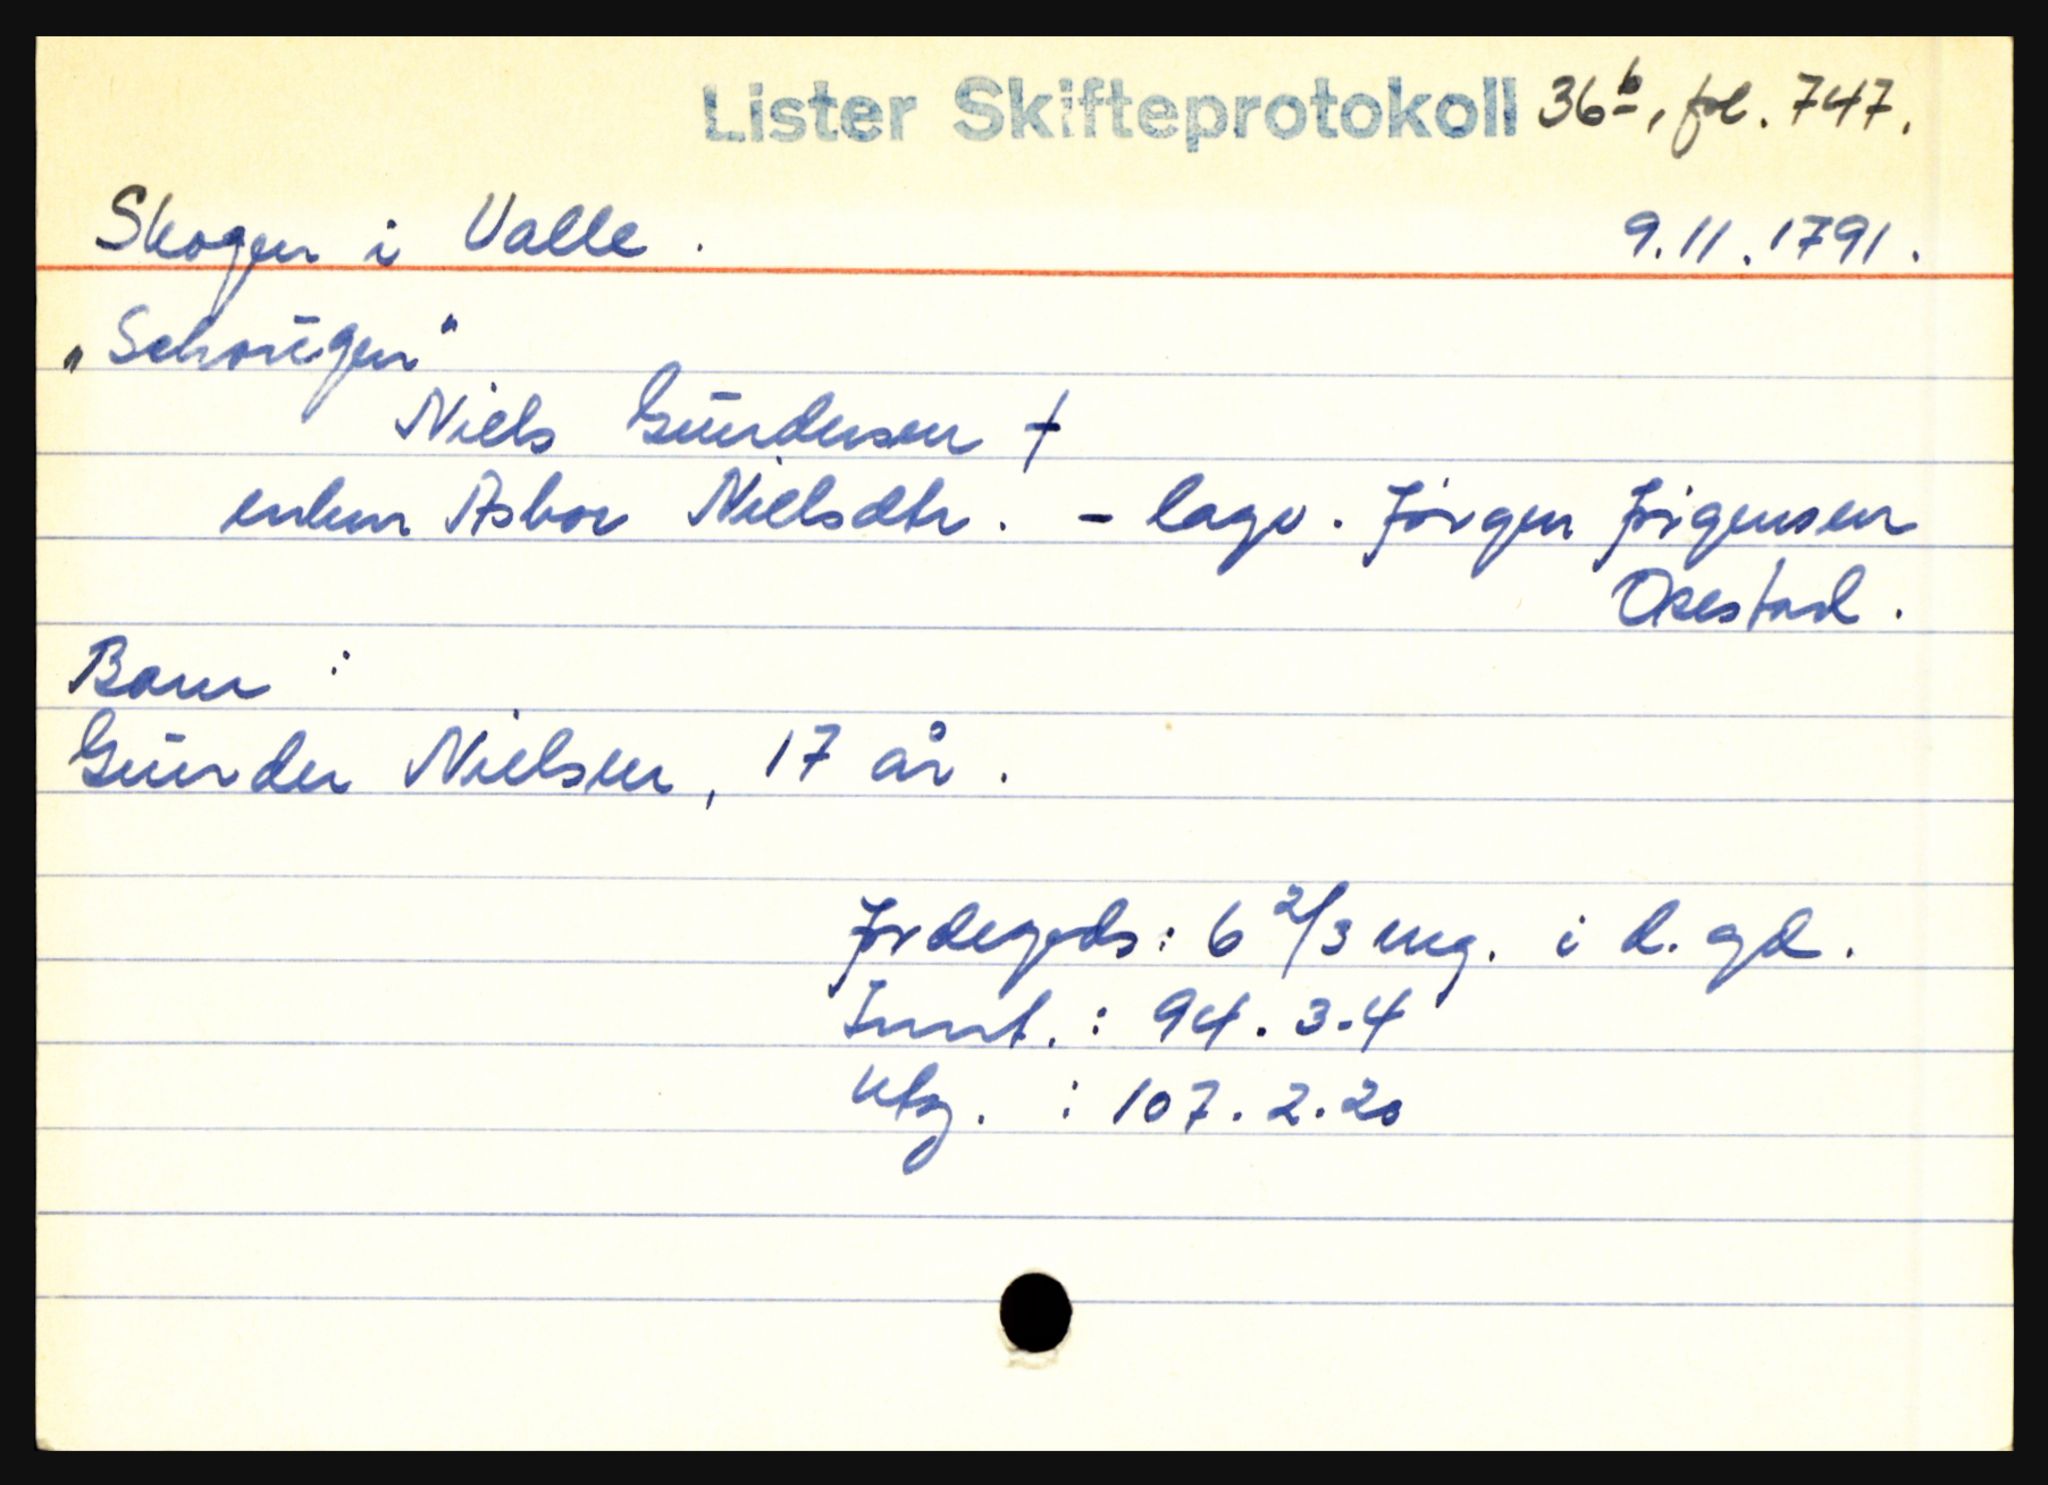 Lister Skifteprotokoll 36<u>b</u>, fol. 747.
Skogen i Valle. 9.11.1791.
„Schougen"
Niels Gundersen †
enken Asbor Nielsdtr. - lagv. Jørgen Jørgensen
Osestad.
Barn:
Gunder Nielsen, 17 år.
Jordegods: 6 2/3 mg. i d. gd.
Innt.: 94.3.4
Utg.: 107.2.20